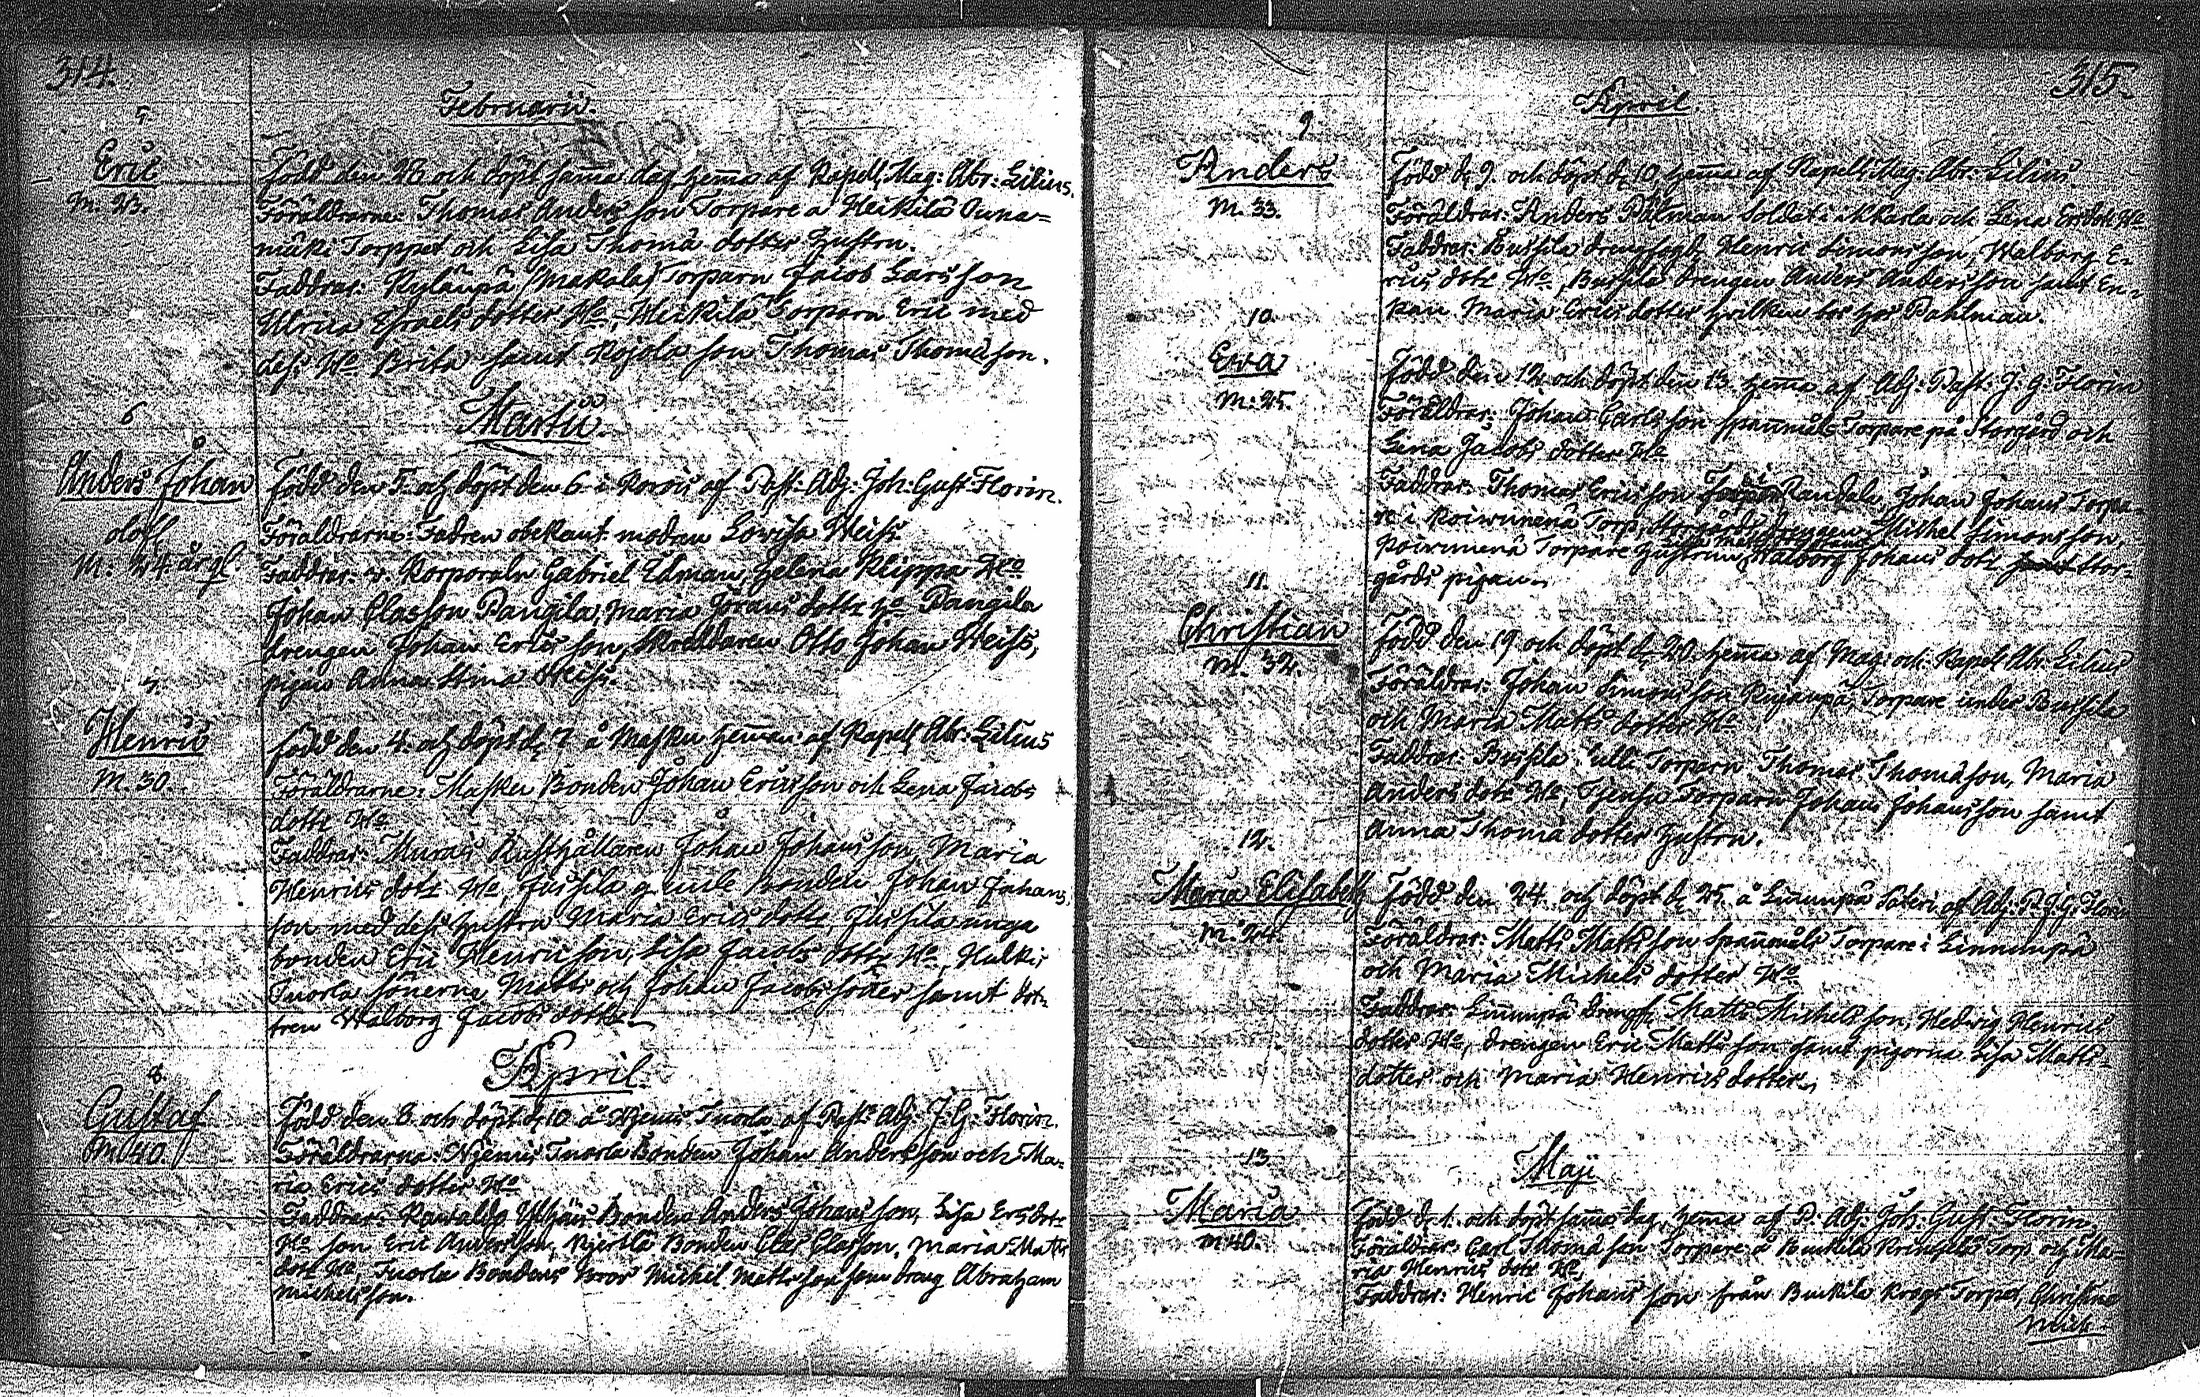 314.
Februarii.
5.
Eric
M: 23.
Född den 28 och döpt sama dag hema af Kapell: Mag: Abr: Lilius.
Föräldrarne: Thomas Anders son Torpare a Heikilä Ouna=
mäki Torppet och Lisa Thomä dotter hustru.
Faddrar: Kylänpä (Makala) Torparn Jacob Lars son
Ulrica Esraels dotter Ho, Heikilä Torparn Eric med
dess Ho Brita samt Kojola son Thomas Thomäson.
Martii
6
Anders Johan
olofl
M: 24 år gl.
Född den 5. och döpt den 6. i Korois af Past: Adj: Joh: Gust: Florin.
Föräldrarne: Fadren obekant modren Lovisa Heiss
Faddrar: v. Korporaln Gabriel Edman, Helena Klippa Ho
Johan Classon Pangila, Maria Jörans dottr Ho Pangila
drengen Johan Erics son, Skreddaren Otto Johan Heiss,
pigan Anna Stina Heiss.
7.
Henric
M. 30.
Född den 4. och döpt d: 7 å Masku hemman af Kapell Abr: Lilius
Föräldrarne: Masku Bonden Johan Ericsson och Lena Jacobs
dottr Ho
Faddrar: Murais Rusthållaren Johan Johansson, Maria
Henrics dottr Ho, Jussila gamle Bonden Johan Johans
son med dess hustru Maria Erics dottr, Jussila unga
bonden Eric Henricson, Lisa Jacobs dottr Ho, Hulkis
Tuorla sönerne Matts och Johan Jacobs söner samt dot=
tren Walborg Jacobs dotter
April
8.
Gustaf
M 40.
Född den 8. och döpt d: 10 å Njemis Tuorla af Past: Adj: J: G: Florin.
Föräldrarna: Njemis Tuorla Bonden Johan Anders son och Ma=
ria Erics dotter Ho
Faddrar: Rawaldo Bonden Anders Johans son, Lisa Ers dotr
Ho son Eric Anderson, Bonden Clas Classon, Maria Matts
dottr Ho, Tuorla Bondens bror Michel Mattsson som dreng Abraham
Michelsson.
315.
April.
9
Anders
M. 33.
Född d: 9. och döpt d: 10 hema af Kapell: Mag: Abr: Lilius.
Föräldrar: Anders Pålman Soldat i Ikkarla och Lena Ersdotr Ho
Faddrar: Bussila drengfogde Henric Simonsson, Walborg E=
rics dotr Ho, Bussila drengen Anders Andersson samt En=
kan Maria Erics dotter hvilken bor hos Pahlman.
10.
Eva
M: 25.
Född den 12 och döpt den 13. hema af Adj: Past: J: G Florin
Föräldrar: Johan Carls son spannmåls Torpare på Storgård och
Lena Jacobs dotter Ho
Faddrar: Thomas Ericsson Randala, Johan Johans Torpa=
re i Koivunenä Torp, Storgårds drengen Michel Simonsson,
Koivunenä Torpare hustrun, Walborg Johans dotr Stor=
gårds pigan.
11.
Christian
M. 32.
Född den 19 och döpt d: 20 hema af Mag: och Kapell Abr: Lilius
Föräldrar: Johan Simonsson Torpare under Bussila
och Maria Matts dotter Ho
Faddrar: Bussila Ulli Torparn Thomas Thomäson, Maria
Anders dotr Ho, Torparn Johan Johansson samt
Anna Thomä dotter hustru.
12.
Maria Elisabeth
M: 24.
Född den 24. och döpt d: 25 å Linnunpä Säteri af Adj: P. J. G. Florin
Föräldrar: Matts Mattsson spannmåls Torpare i Linnunpä
och Maria Michels dotter Ho
Faddrar: Linnunpä Matts Michelsson, Hedvig Henrics
dotter Ho, drengen Eric Mattsson samt pigorne Lisa Matts=
dotter och Maria Henrics dotter
13
Maji
Maria
M 40.
Född d: 1. och döpt sama dag hema af P: Adj: Joh: Gust: Florin,
Föräldrar: Carl Thomä son Torpare å Buckila Torp och Ma=
ria Henrics dotr Ho,
Faddrar: Henric Johans son från Buckila Krogs Torpet, Christina
Mich=